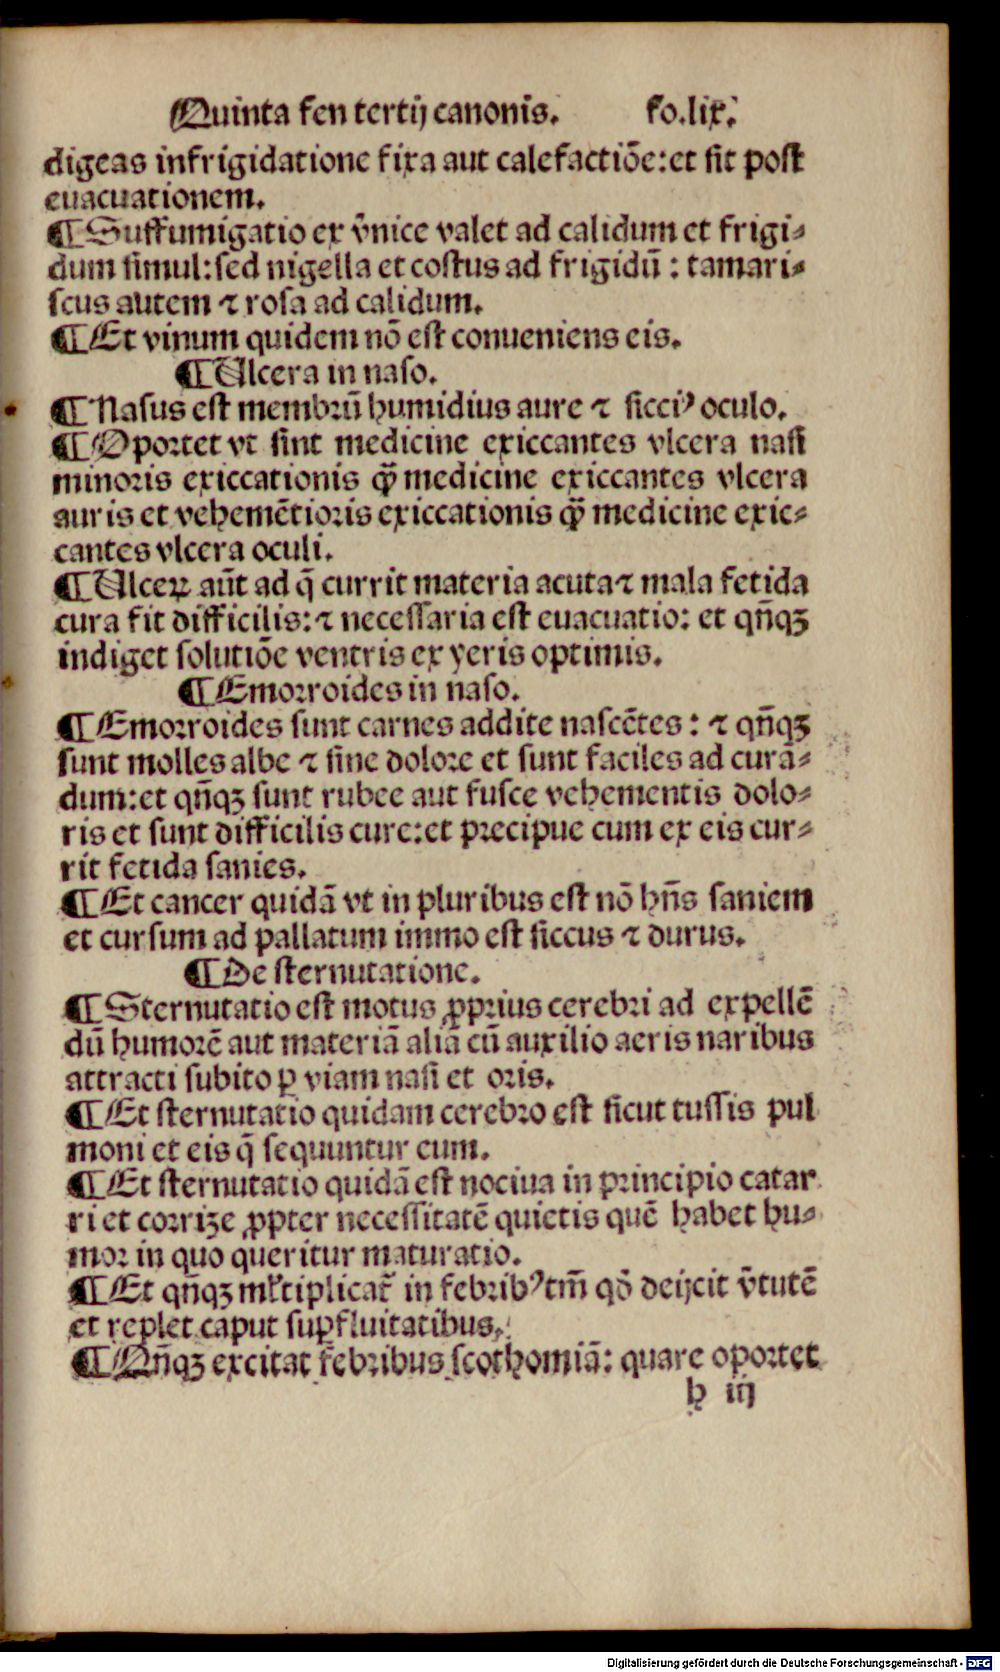 Quinta fen tertij canonis. fo.lix.
digeas infrigidatione fixa aut calefactiōe:et sit post
euacuationem.
¶Suffumigatio ex v̄nice valet ad calidum et frigi⸗
dum simul:sed nigella et costus ad frigidū : tamari⸗
scus autem ⁊ rosa ad calidum.
¶Et vinum quidem nō est conueniens eis.
¶Ulcera in naso.
¶Nasus est membrū humidius aure ⁊ sicciꝰ oculo.
¶Oportet vt sint medicine exiccantes vlcera nasi
minoris exiccationis ꝙ̄ medicine exiccantes vlcera
auris et vehemētioris exiccationis ꝙ̄ medicine exic⸗
cantes vlcera oculi.
¶Ulceꝝ aūt ad q̄ currit materia acuta⁊ mala fetida
cura fit difficilis:⁊ necessaria est euacuatio: et qn̄qꝫ
indiget solutiōe ventris ex yeris optimis.
¶Emorroides in naso.
¶Emorroides sunt carnes addite nascētes : ⁊ qn̄qꝫ
sunt molles albe ⁊ sine dolore et sunt faciles ad curā⸗
dum:et qn̄qꝫ sunt rubee aut fusce vehementis dolo⸗
ris et sunt difficilis cure:et precipue cum ex eis cur⸗
rit fetida sanies.
¶Et cancer quidā vt in pluribus est nō hn̄s saniem
et cursum ad pallatum immo est siccus ⁊ durus.
¶De sternutatione.
¶Sternutatio est motus ꝓprius cerebri ad expellē
dū humorē aut materiā aliā cū auxilio aeris naribus
attracti subito ꝑ viam nasi et oris.
¶Et sternutatio quidam cerebro est sicut tussis pul
moni et eis q̄ sequuntur cum.
¶Et sternutatio quidā est nociua in principio catar
ri et corrize ꝓpter necessitatē quietis quē habet hu⸗
mor in quo queritur maturatio.
¶Et qn̄qꝫ ml̄tiplicat̄ in febribꝰ tm̄ qō deijcit v̄tutē
et replet caput suꝑfluitatibus.
¶Qn̄qꝫ excitat febribus scothomiā: quare oportet
h iij
Digitalisierung gefördert durch die Deutsche Forschungsgemeinschaft - DFG